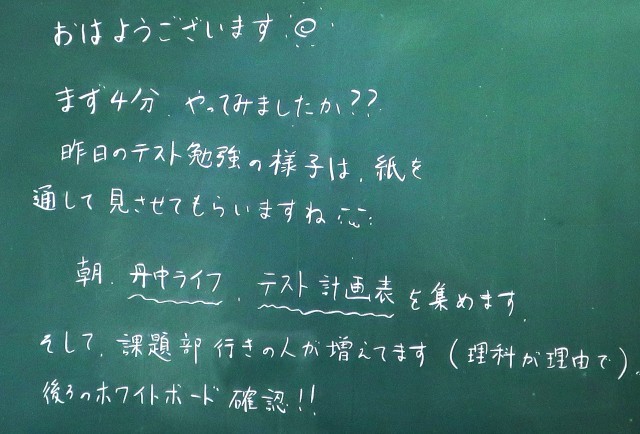 おはようございます
まず4分、やってみましたか??
昨日のテスト勉強の様子は、紙を
通して見させてもらいますね
朝、丹中ライフ、テスト計画表を集めます。
そして、課題部行きの人が増えてます(理科が理由で)。
後ろのホワイトボード確認!!